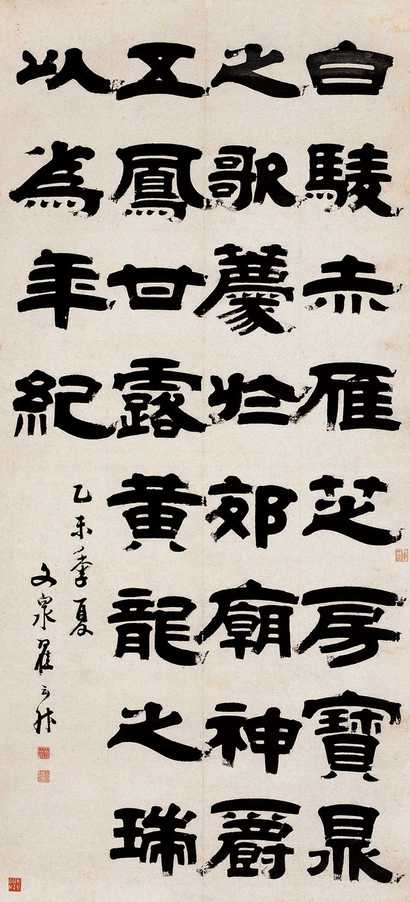 白䮚赤雁芝房寶鼎
之歌薦於郊廟神爵
五鳳甘露黃龍之瑞
以為年紀
乙未季夏
文泉翟云升